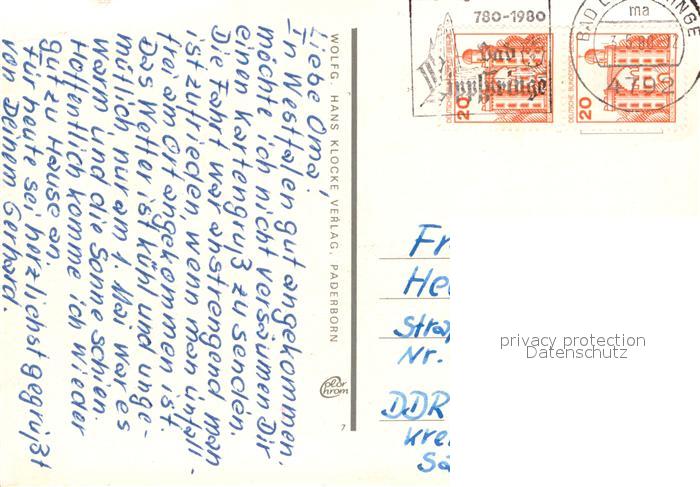 Liebe Oma!
In Westfalen gut angekommen,
möchte ich nicht versäumen Dir
einen Kartengruß zu senden.
Die Fahrt war anstrengend man
ist zufrieden, wenn man unfall-
frei am Ort angekommen ist.
Das Wetter ist kühl und unge-
mütlich, nur am 1. Mai war es
warm und die Sonne schien.
Hoffentlich komme ich wieder
gut zu Hause an.
Für heute sei herzlichst gegrüßt
von Deinem Gerhard.
WOLFG. HANS KLOCKE VERLAG, PADERBORN
Color
Chrom
7
780-1980
Bad
Lippspringe
ma
4792
DEUTSCHE BUNDESPOST
20
DEUTSCHE BUNDESPOST
20
Fr
He
Straß
Nr.
DDR
Kre
Sä
privacy protection
Datenschutz